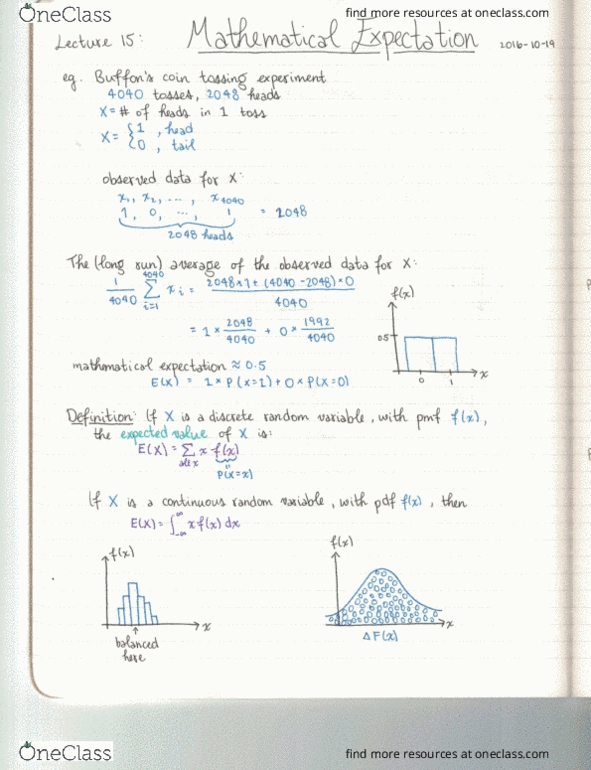 OneClass
find more resources at oneclass.com
Lecture 15: Mathematical Expectation 2016-10-19
eg. Buffon's coin tossing experiment
4040 tosses, 2048 heads
X = # of heads in 1 toss
X = { 1 , head
0 , tail
observed data for X:
x₁, x₂, ..., x₄₀₄₀
1, 0, ..., 1 = 2048
2048 heads
The (long run) average of the observed data for X:
1/4040 4040 Σ i=1 xᵢ = 2048×1 + (4040-2048)×0 / 4040
= 1 × 2048/4040 + 0 × 1992/4040
f(x)
0.5
0 1 x
mathematical expectation ≈ 0.5
E(X) = 1×P(X=1) + 0×P(X=0)
Definition: If X is a discrete random variable, with pmf f(x),
the expected value of X is:
E(X) = Σ all x x f(x)
P(X=x)
If X is a continuous random variable, with pdf f(x), then
E(X) = ∫₋∞^∞ x f(x) dx
f(x)
x
balanced
here
f(x)
x
ΔF(x)
OneClass
find more resources at oneclass.com